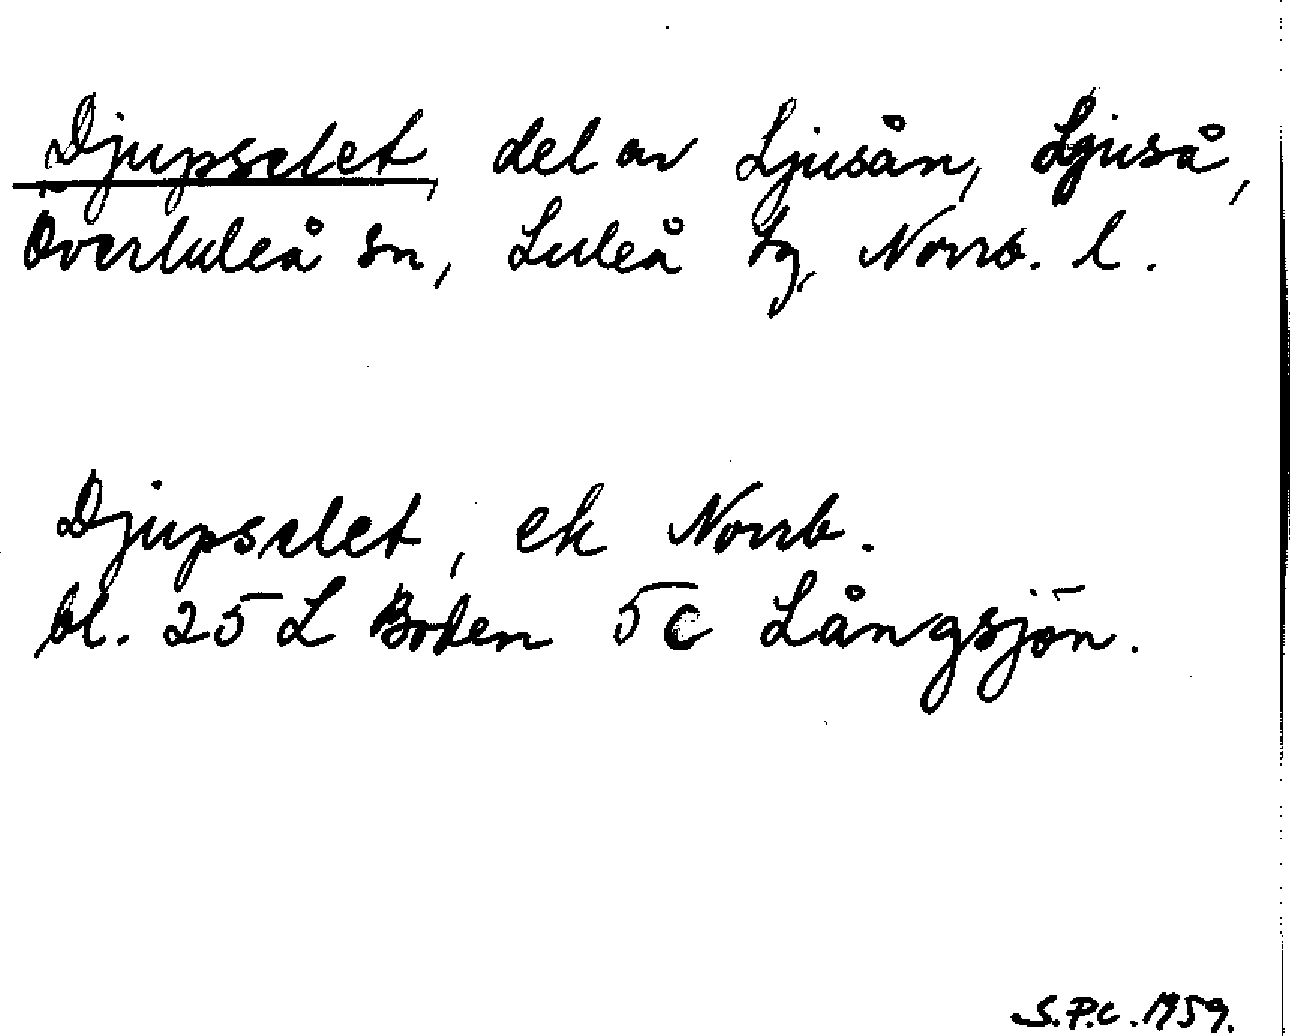 Djupselet, del av Ljusån, Ljuså,
Överluleå sn, Luleå tg, Norrb. l.
Djupselet, ek Norrb.
bl. 25 L Boden 5 c Långsjön.
S.P.C. 1959.